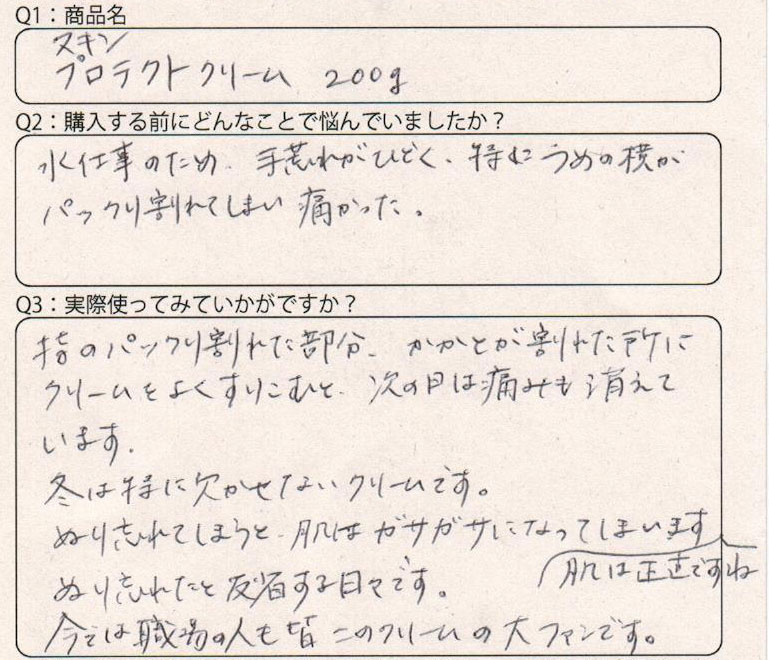 Q1：商品名
スキン
プロテクトクリーム 200g
Q2：購入する前にどんなことで悩んでいましたか？
水仕事のため、手荒れがひどく、特につめの横が
パックリ割れてしまい痛かった。
Q3：実際使ってみていかがですか？
指のパックリ割れた部分、かかとが割れた所に
クリームをよくすりこむと、次の日は痛みも消えて
います。
冬は特に欠かせないクリームです。
ぬり忘れてしまうと、肌はガサガサになってしまいます
肌は正直ですね
ぬり忘れたと反省する日々です。
今では職場の人も皆このクリームの大ファンです。